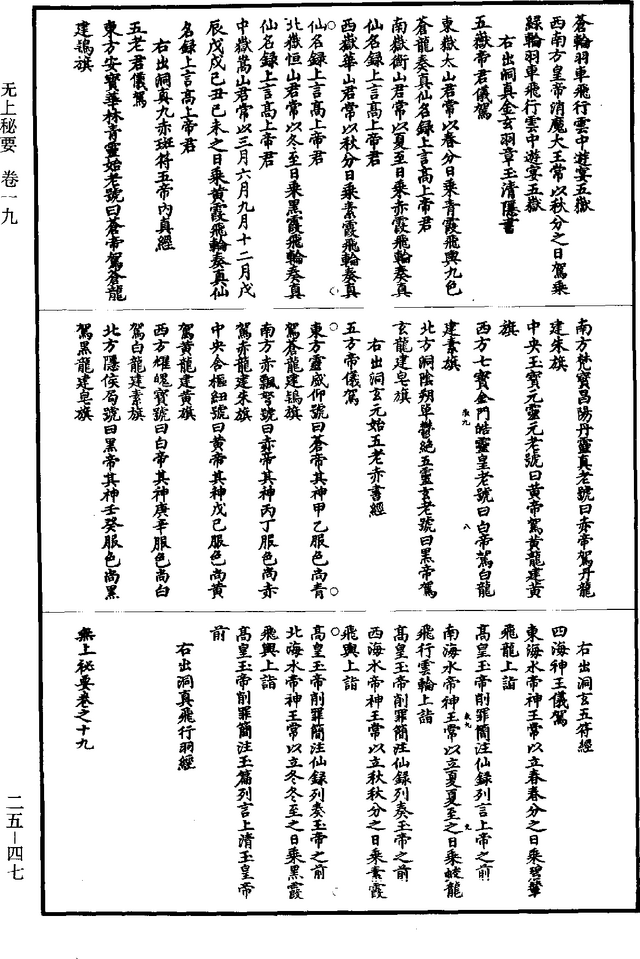 蒼輪羽車飛行雲中遊宴五嶽
西南方皇帝消魔大王常以秋分之日駕乘
綠輪羽車飛行雲中遊宴五嶽
右出洞真金玄羽章玉清隱書
五嶽帝君儀駕
東嶽太山君常以春分日乘青霞飛輿九色
蒼龍奏真仙名録上言髙上帝君
南嶽衡山君常以夏至日乘赤霞飛輪奏真
仙名録上言髙上帝君
西嶽華山君常以秋分日乘素霞飛輪奏真
仙名録上言髙上帝君
北嶽恒山君常以冬至日乘黑霞飛輪奏真
仙名録上言髙上帝君
中嶽嵩山君常以三月六月九月十二月戊
辰戊戌己丑己未之日乘黄霞飛輪奏真仙
名録上言髙上帝君
右出洞真九赤班符五帝內真經
五老君儀駕
東方安寶華林青靈始老號曰蒼帝駕蒼龍
建鶉旗
南方梵寶昌陽丹靈真老號曰赤帝駕丹龍
建朱旗
中央玉寶元靈元老號曰黄帝駕黄龍建黄
旗
西方七寶金門皓靈皇老號曰白帝駕白龍
建素旗
北方洞陰朔單鬱絶五靈玄老號曰黑帝駕
玄龍建皂旗
右出洞玄元始五老赤書經
五方帝儀駕
東方靈威仰號曰蒼帝其神甲乙服色尚青
駕蒼龍建鶉旗
南方赤飄弩號曰赤帝其神丙丁服色尚赤
駕赤龍建朱旗
中央含樞紐號曰黄帝其神戊己服色尚黄
駕黄龍建黄旗
西方耀魄寶號曰白帝其神庚辛服色尚白
駕白龍建素旗
北方隱侯局號曰黑帝其神壬癸服色尚黑
駕黑龍建皂旗
右出洞玄五符經
四海神王儀駕
東海水帝神王常以立春春分之日乘碧輦
飛龍上詣
髙皇玉帝削罪簡注仙録列言上帝之前
南海水帝神王常以立夏夏至之日乘蛟龍
飛行雲輪上詣
髙皇玉帝削罪簡注仙録列奏玉帝之前
西海水帝神王常以立秋秋分之日乘素霞
飛輿上詣
髙皇玉帝削罪簡注仙録列奏玉帝之前
北海水帝神王常以立冬冬至之日乘黑霞
飛輿上詣
髙皇玉帝削罪簡注玉篇列言上清玉皇帝
前
右出洞真飛行羽經
無上祕要卷之十九
无上秘要 卷一九
二五—四七